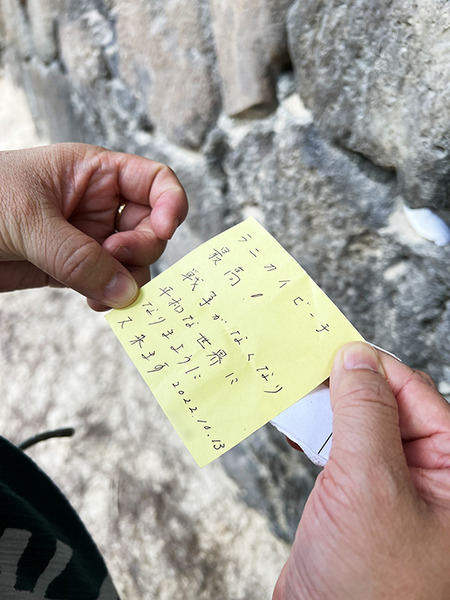 ラニカイビーチ
最高!
戦争がなくなり
平和な世界に
なりますように
又来ます
2022.10.13